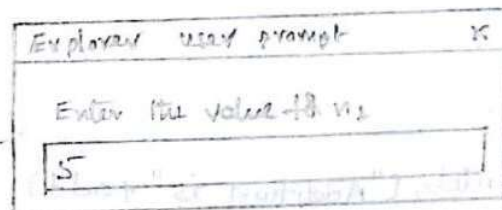 Explorer user prompt x
Enter the value
5